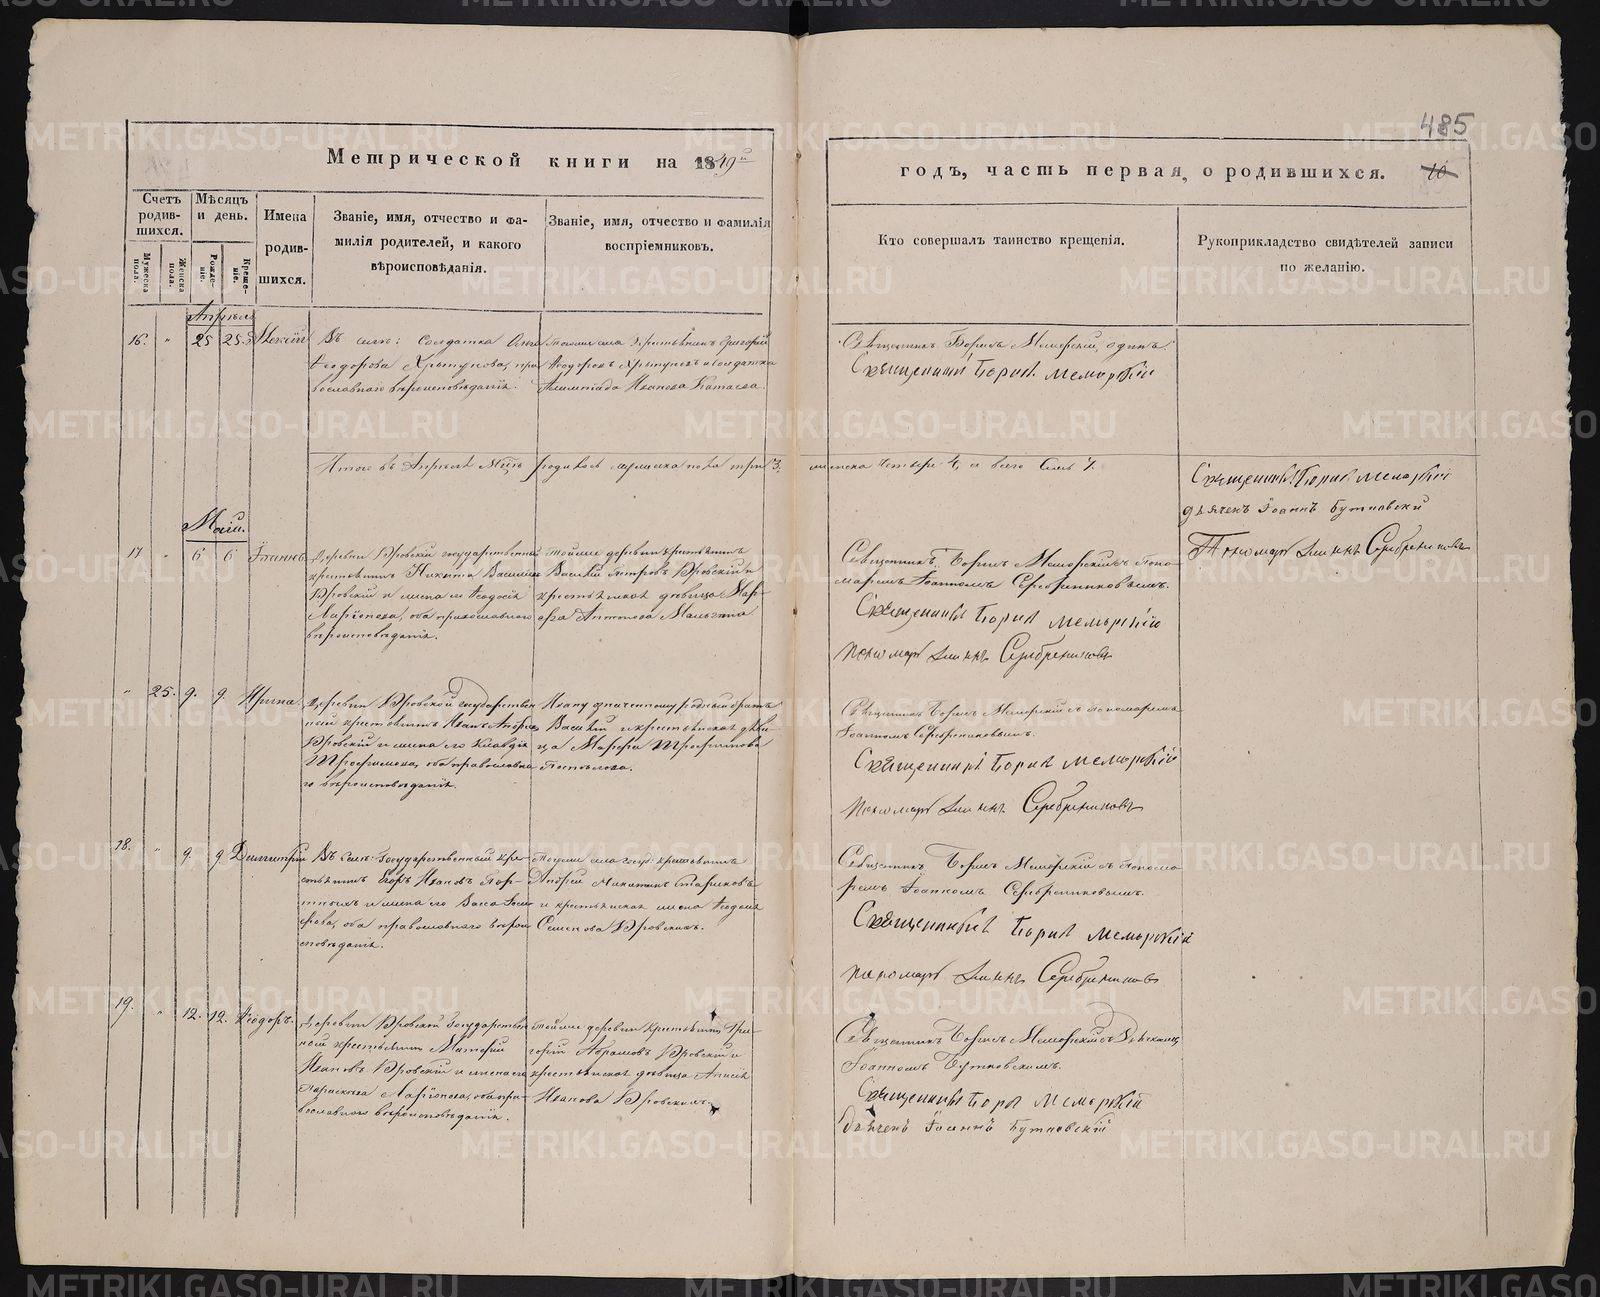 485
Метрической книги на 1849й
годъ, часть первая, о родившихся.
10
Счетъ родив-шихся.
Мѣсяцъ и день.
Имена родив-шихся.
Званіе, имя, отчество и фа-
милія родителей, и какого
вѣроисповѣданія.
Званіе, имя, отчество и фамилія
воспріемниковъ.
Кто совершалъ таинство крещенія.
Рукоприкладство свидѣтелей записи
по желанію.
Мужеска пола.
Женска пола.
Рожде-ніе.
Креще-ніе.
Апрѣль
16. " 25 25.
Въ селѣ: Солдатка Анна
Ѳеодорова Хрытукова, пра
вославнаго вѣроисповѣданія.
Тогоже села Крестьянинъ Григорій
Ѳеодоровъ Хрытуковъ и солдатка
Иванова Катаева.
Священникъ Борисъ Меморскій, одинъ.
Священникъ Борисъ Меморскій
Итого въ Апрѣлѣ Мцѣ родилось мужеска пола три 3.
женска четыре 4, а всего семь 7.
Священникъ Борисъ Меморскій
дьячекъ Іоаннъ Бутковскій
Пономарь Іоаннъ Серебренниковъ
Маій.
17 " 6 6 Іоаннъ
Деревни Юровской государственный
крестьянинъ Никита Васильевъ
Юровскій и жена его Ѳеодосія
Ларіонова, оба православнаго
вѣроисповѣданія.
Тойже деревни крестьянинъ
Василій Петровъ Юровскій и
крестьянская дѣвица Мар-
ѳа Антонова
Священникъ Борисъ Меморскій съ Поно-
маремъ Іоанномъ Серебренниковымъ.
Священникъ Борисъ Меморскій
пономарь Іоаннъ Серебренниковъ
" 25. 9. 9. Ирина
Деревни Юровской государствен
ный крестьянинъ Иванъ Андреевъ
Юровскій и жена его Клавдія
Трофимова, оба православна
го вѣроисповѣданія.
Ивану означенному родный братъ
Василій и крестьянская дѣви-
ца Марѳа Трофимова
Священникъ Борисъ Меморскій съ пономаремъ
Іоанномъ Серебренниковымъ.
Священникъ Борисъ Меморскій
пономарь Іоаннъ Серебренниковъ
18. " 9. 9. Димитрій
Въ селѣ: Государственный кре-
стьянинъ Егоръ Ивановъ Пор-
тныхъ и жена его Васса
оба православнаго вѣрои
сповѣданія.
Тогоже села госуд: крестьянинъ
Андрей Никитинъ Стариковъ
и крестьянская жена Ѳеодосія
Семенова Юровскихъ.
Священникъ Борисъ Меморскій съ Понома
ремъ Іоанномъ Серебренниковымъ.
Священникъ Борисъ Меморскій
пономарь Іоаннъ Серебренниковъ
19. " 12. 12. Ѳеодоръ.
Деревни Юровской Государствен
ной крестьянинъ
Ивановъ Юровскій и жена его
Параскева Ларіонова, оба пра-
вославнаго вѣроисповѣданія.
Тойже деревни крестьянинъ Гри-
горій Абрамовъ Юровскій и
крестьянская дѣвица Анисія
Иванова Юровскихъ.
Священникъ Борисъ Меморскій съ Дьячкомъ
Іоанномъ Бутковскимъ.
Священникъ Борисъ Меморскій
дьячекъ Іоаннъ Бутковскій
METRIKI.GASO-URAL.RU